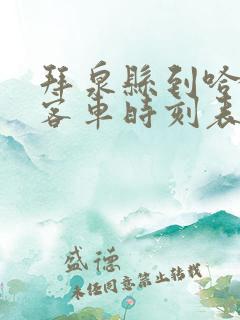 拜泉縣到哈
客車時刻表
盛德
未经同意禁止转载